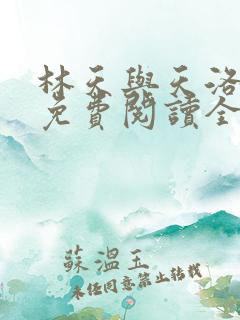 林天與天洛
免費閱讀全
蘇溫玉
未經同意禁止轉載